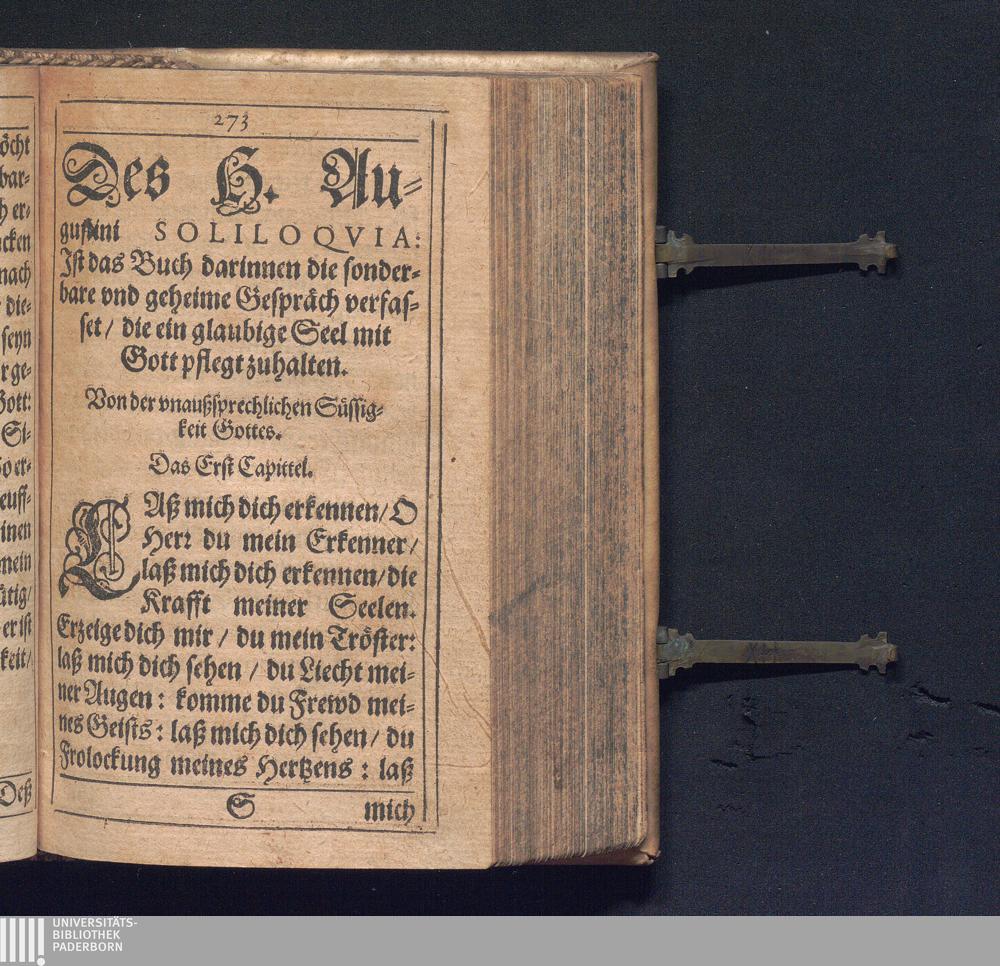 273
Des H. Au-
gustini SOLILOQVIA:
Ist das Buch darinnen die sonder-
bare vnd geheime Gespräch verfas-
set / die ein glaubige Seel mit
Gott pflegt zuhalten.
Von der vnaußsprechlichen Süssig-
keit Gottes.
Das Erst Capittel.
LAß mich dich erkennen / O
Herr du mein Erkenner /
laß mich dich erkennen / die
Krafft meiner Seelen.
Erzeige dich mir / du mein Tröster:
laß mich dich sehen / du Liecht mei-
ner Augen : komme du Frewd mei-
nes Geists : laß mich dich sehen / du
Frolockung meines Hertzens : laß
S mich
öcht
bar-
er-
cken
nach
die-
seyn
ge-
Gott:
Si-
er-
euff-
inen
mein
ütig/
er ist
keit/
Deß
UNIVERSITÄTS-
BIBLIOTHEK
PADERBORN